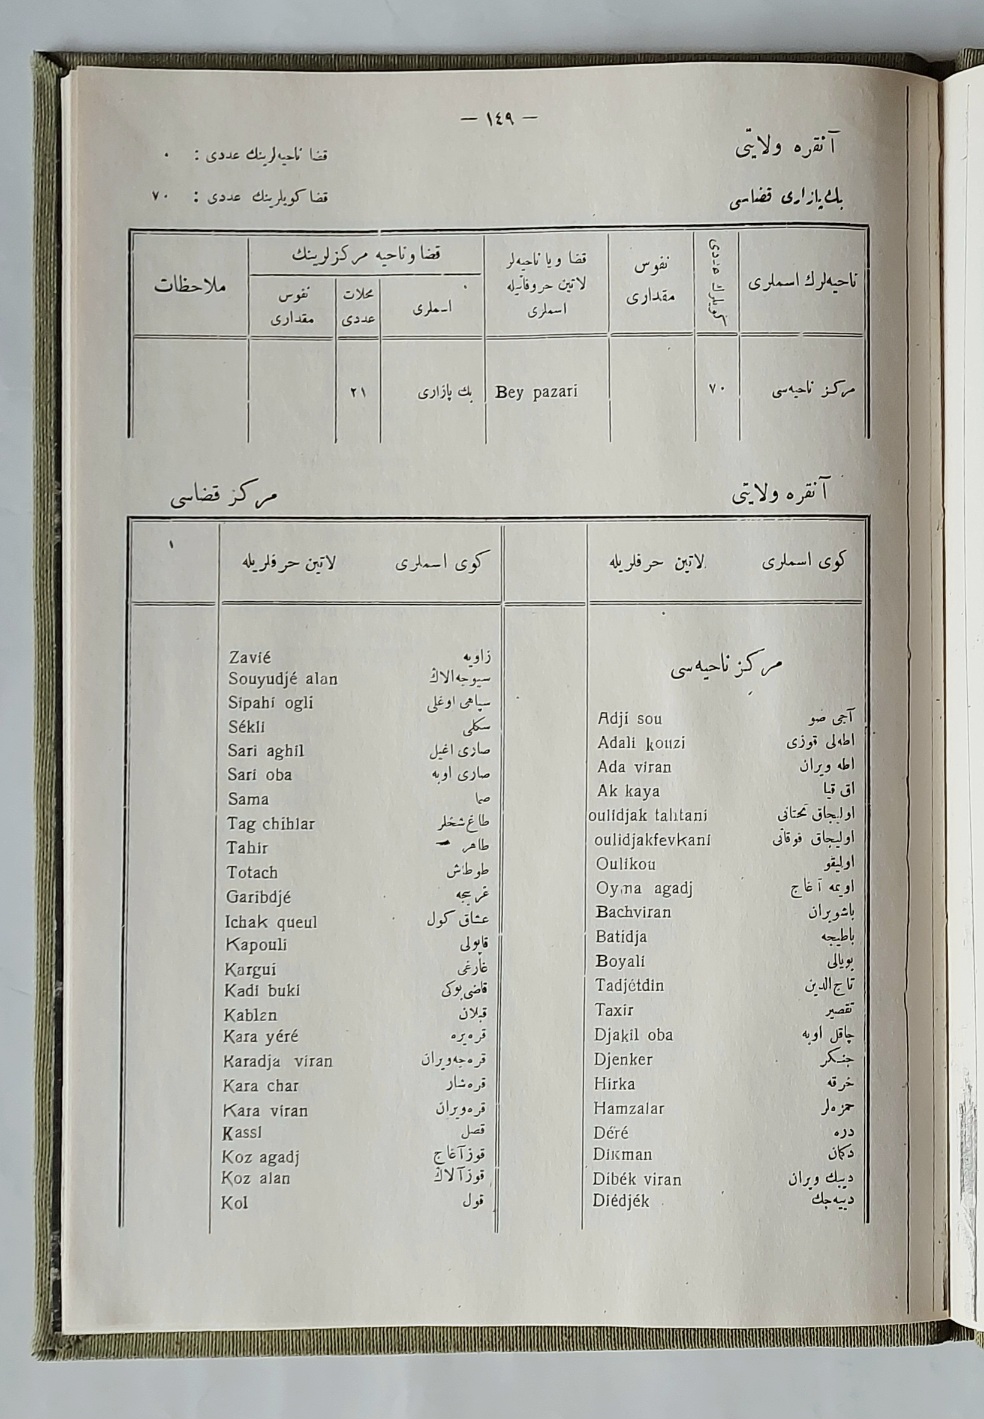 — ١٤٩ —
آنقره ولايتى
قضا ناحيه‌لرينك عددى : ٠
بك‌پازارى قضاسى
قضا كويلرينك عددى : ٧٠
ناحيه‌لرك اسملرى
كويلرك عددى
نفوس مقدارى
قضا ويا ناحيه‌لر لاتين حروفاتيله اسملرى
قضا وناحيه مركزلرينك
اسملرى
محلات عددى
نفوس مقدارى
ملاحظات
مركز ناحيه‌سى ٧٠ Bey pazari بك پازارى ٢١
آنقره ولايتى
مركز قضاسى
كوى اسملرى لاتين حرفلريله
كوى اسملرى لاتين حرفلريله ١
مركز ناحيه‌سى
آجى صو Adji sou
اطه‌لى قوزى Adali kouzi
اطه ويران Ada viran
اق قيا Ak kaya
اوليجاق تحتانى oulidjak tahtani
اوليجاق فوقانى oulidjakfevkani
اوليقو Oulikou
اويمه آغاج Oyma agadj
باشويران Bachviran
باطيجه Batidja
بويالى Boyali
تاج‌الدين Tadjétdin
تقصير Taxir
چاقل اوبه Djakil oba
جنكر Djenker
خرقه Hirka
حمزه‌لر Hamzalar
دره Déré
دكمان Dikman
ديبك ويران Dibék viran
دييه‌جك Diédjék
زاويه Zavié
سيوجه‌الاڭ Souyudjé alan
سپاهى اوغلى Sipahi ogli
سكلى Sékli
صارى اغيل Sari aghil
صارى اوبه Sari oba
صما Sama
طاغ‌شخلر Tag chihlar
طاهر Tahir
طوطاش Totach
غريبجه Garibdjé
عشاق كول Ichak queul
قاپولى Kapouli
غارغى Kargui
قاضى‌بوكى Kadi buki
قبلان Kablan
قره‌يره Kara yéré
قره‌جه‌ويران Karadja viran
قره‌شار Kara char
قره‌ويران Kara viran
قصل Kassl
قوزآغاج Koz agadj
قوزآلاڭ Koz alan
قول Kol